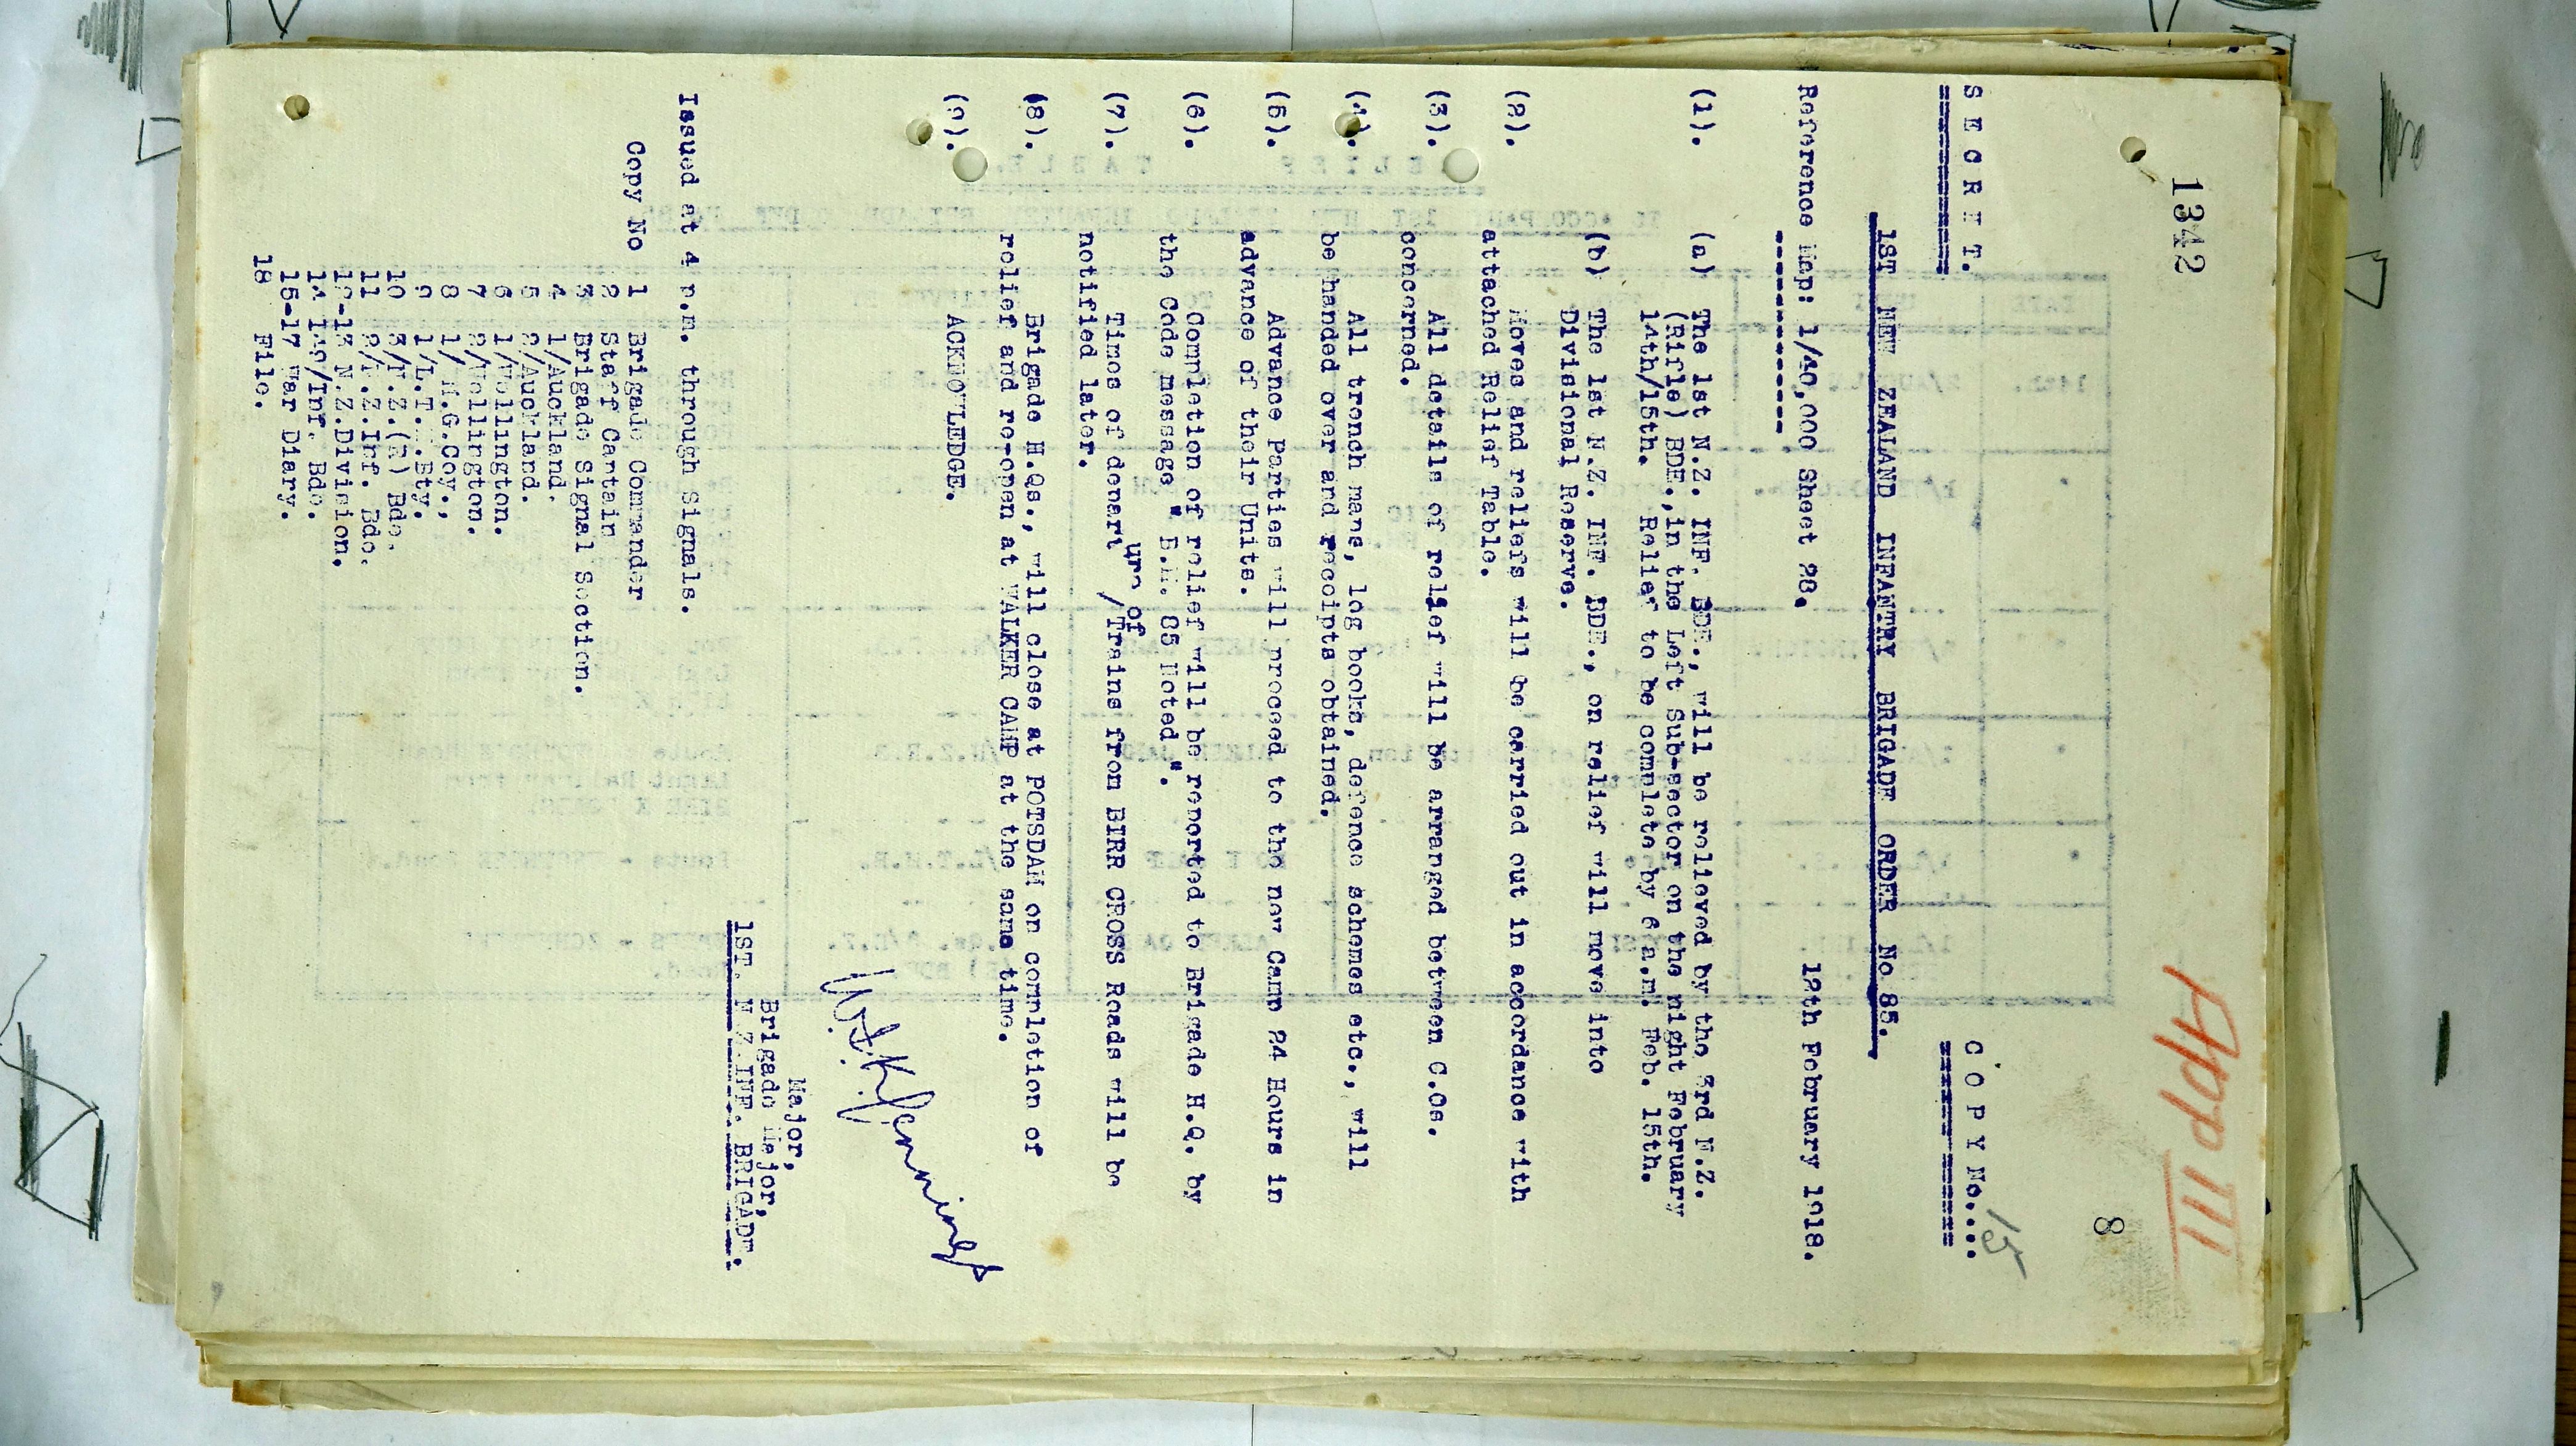 1342
App III
8
S E C R E T.
C O P Y No..... 15
1ST NEW ZEALAND INFANTRY BRIGADE ORDER No 85.
Reference Map: 1/40,000 Sheet 28.
12th February 1918.
(1). (a) The 1st N.Z. INF. BDE., will be relieved by the 3rd N.Z.
(Rifle) BDE., in the Left Sub-sector on the night February
14th/15th. Relief to be complete by 6 a.m. Feb. 15th.
(b) The 1st N.Z. INF. BDE., on relief will move into
Divisional Reserve.
(2). Moves and reliefs will be carried out in accordance with
attached Relief Table.
(3). All details of relief will be arranged between C.Os.
concerned.
(4). All trench maps, log books, defence schemes etc., will
be handed over and receipts obtained.
(5). Advance Parties will proceed to the new Camp 24 Hours in
advance of their Units.
(6). Completion of relief will be reported to Brigade H.Q. by
the Code message " B.M. 85 Noted ".
ure of
(7). Times of depart / Trains from BIRR CROSS Roads will be
notified later.
(8). Brigade H.Qs., will close at POTSDAM on completion of
relief and re-open at WALKER CAMP at the same time.
(9). ACKNOWLEDGE.
Major,
Brigade Major,
1ST. N.Z.INF. BRIGADE.
Issued at 4 p.m. through Signals.
Copy No 1 Brigade Commander
2 Staff Captain
3 Brigade Signal Section.
4 1/Auckland.
5 2/Auckland.
6 1/Wellington.
7 2/Wellington.
8 1/ M.G.Coy.,
9 1/L.T.M.Bty.
10 3/N.Z.(R) Bde.
11 2/N.Z.Inf. Bde.
12-13 N.Z.Division.
14 Inf. Bde.
15-17 War Diary.
18 File.